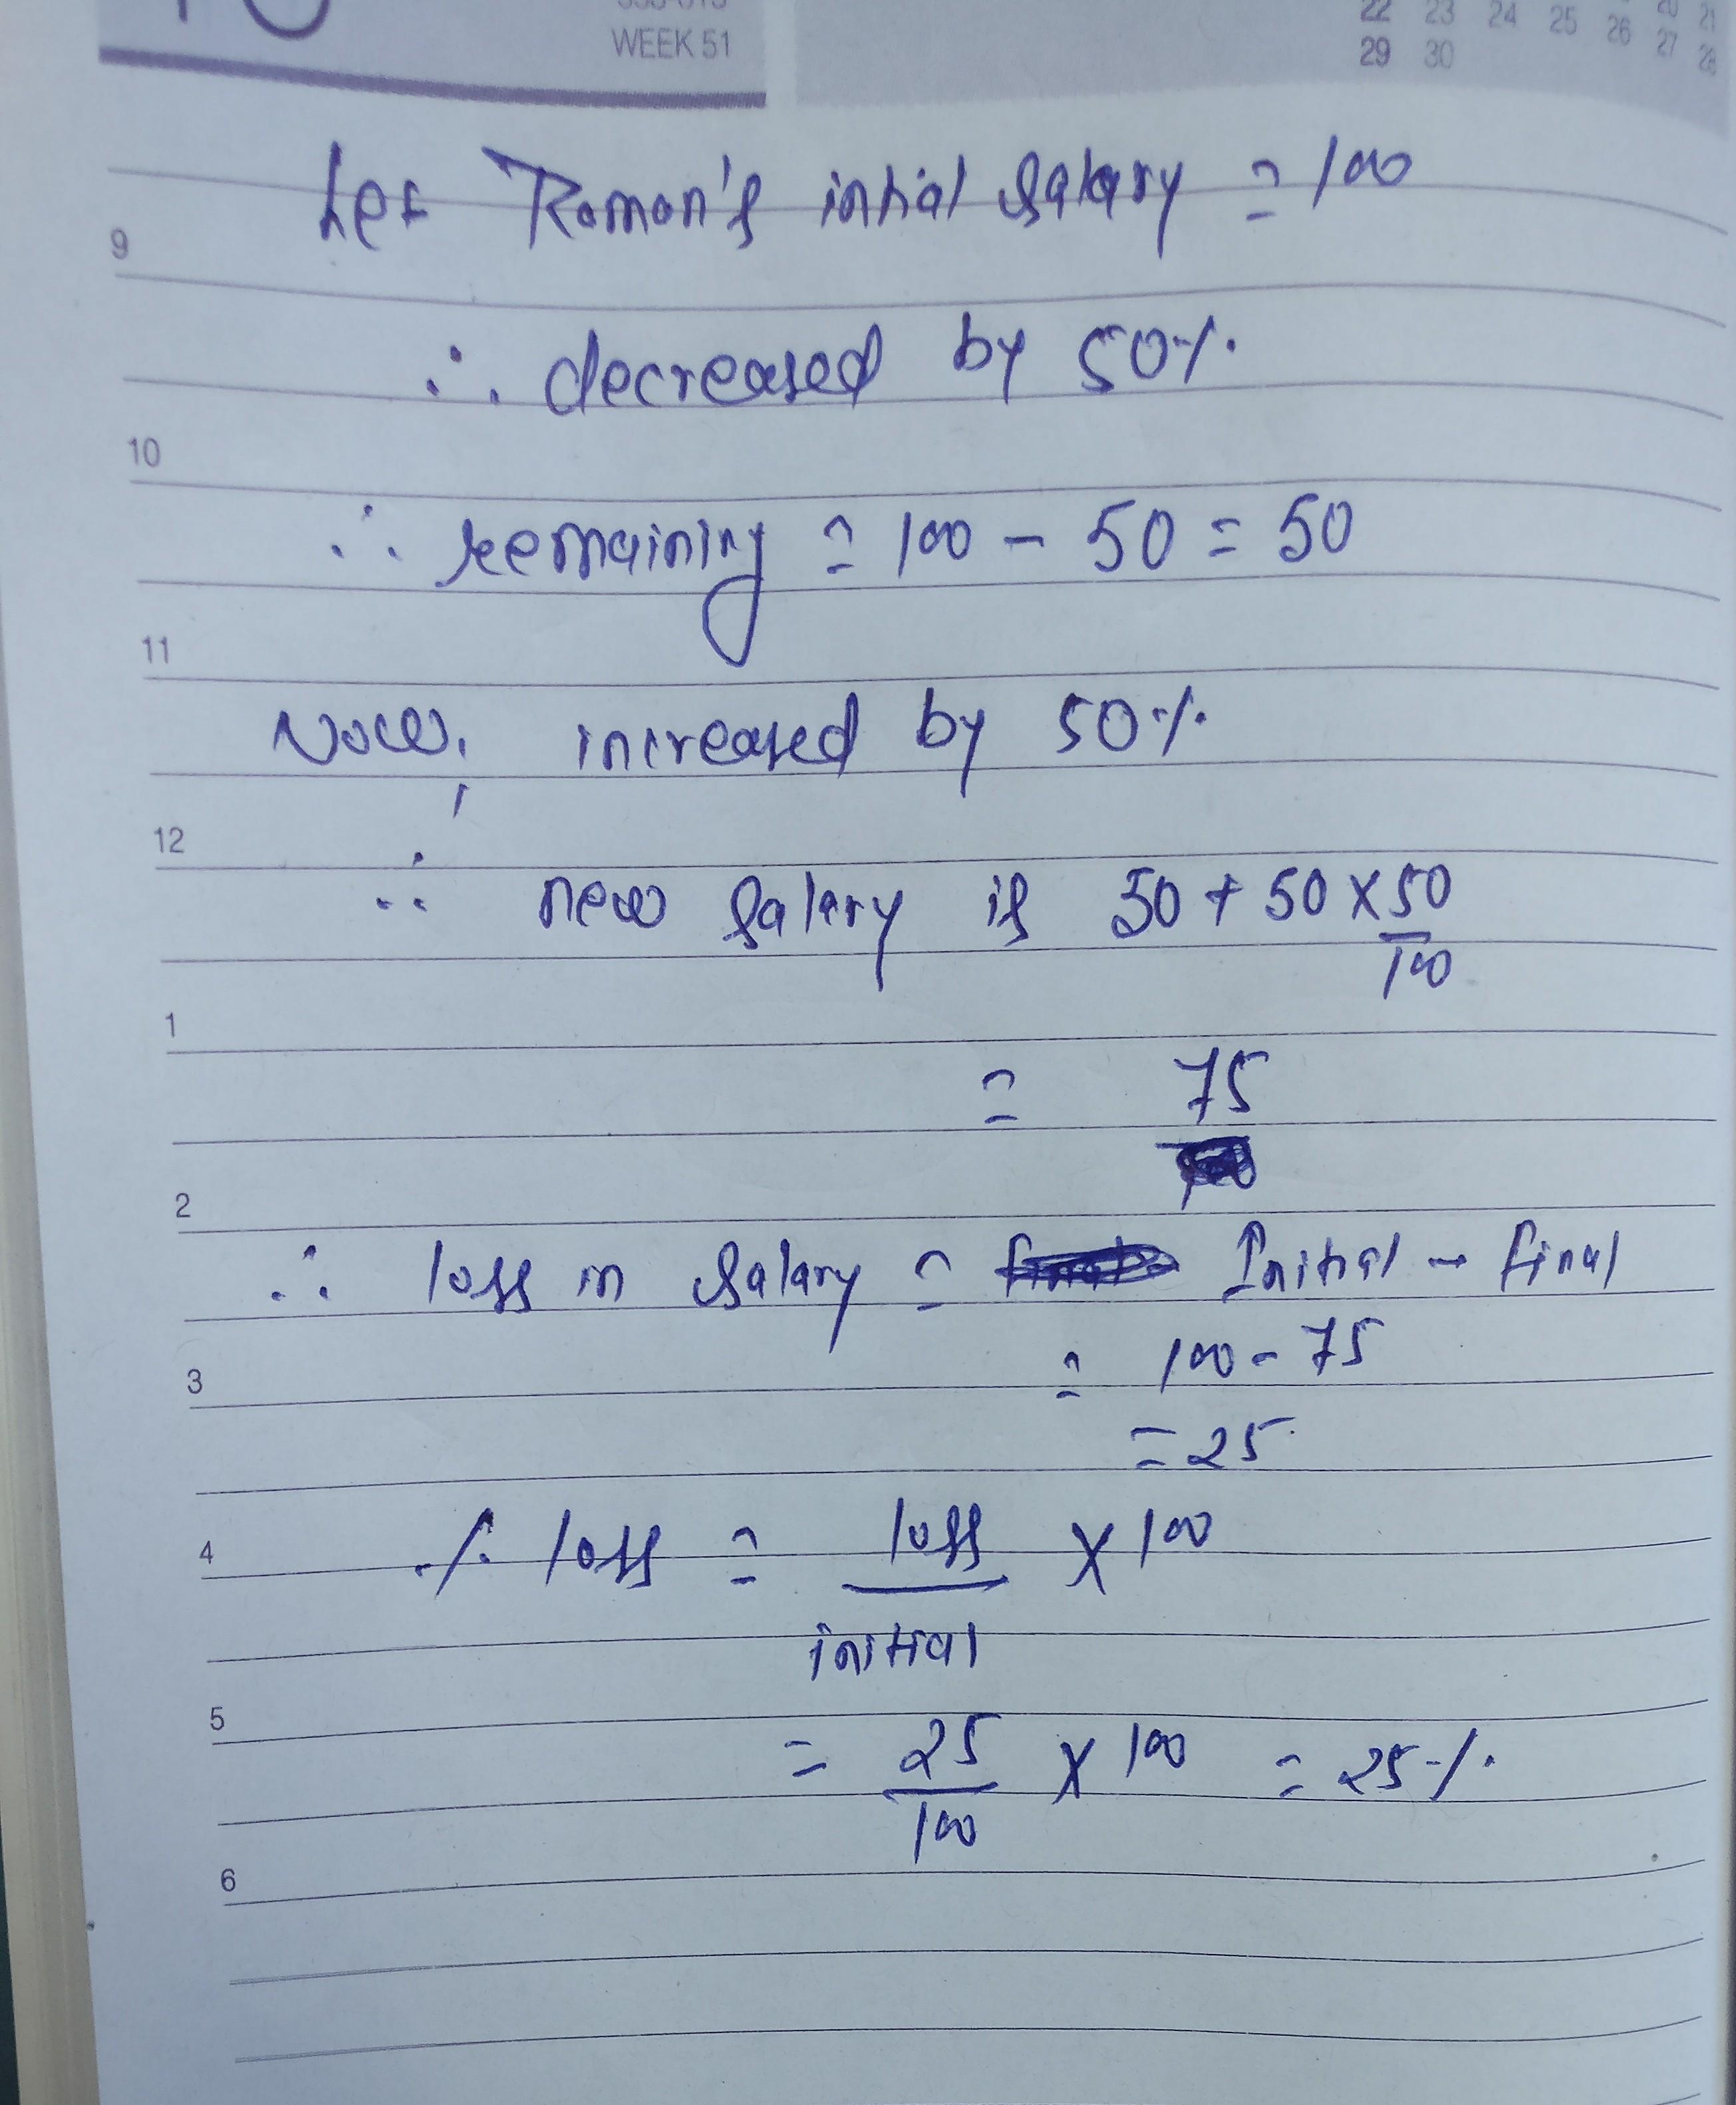 WEEK 51
22 23 24 25 26 20 21
29 30 27 28
Let Raman's intial salary = 100
9
∴ decreased by 50%
10
∴ remaining = 100 - 50 = 50
11
Now, increased by 50%
12
∴ new salary is 50 + 50 × 50/100
1
= 75
2
∴ loss in salary = Initial - final
= 100 - 75
3
= 25
% loss = loss/initial × 100
4
5
= 25/100 × 100 = 25%
6